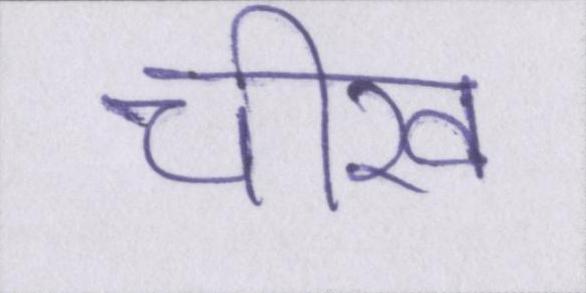 चीख